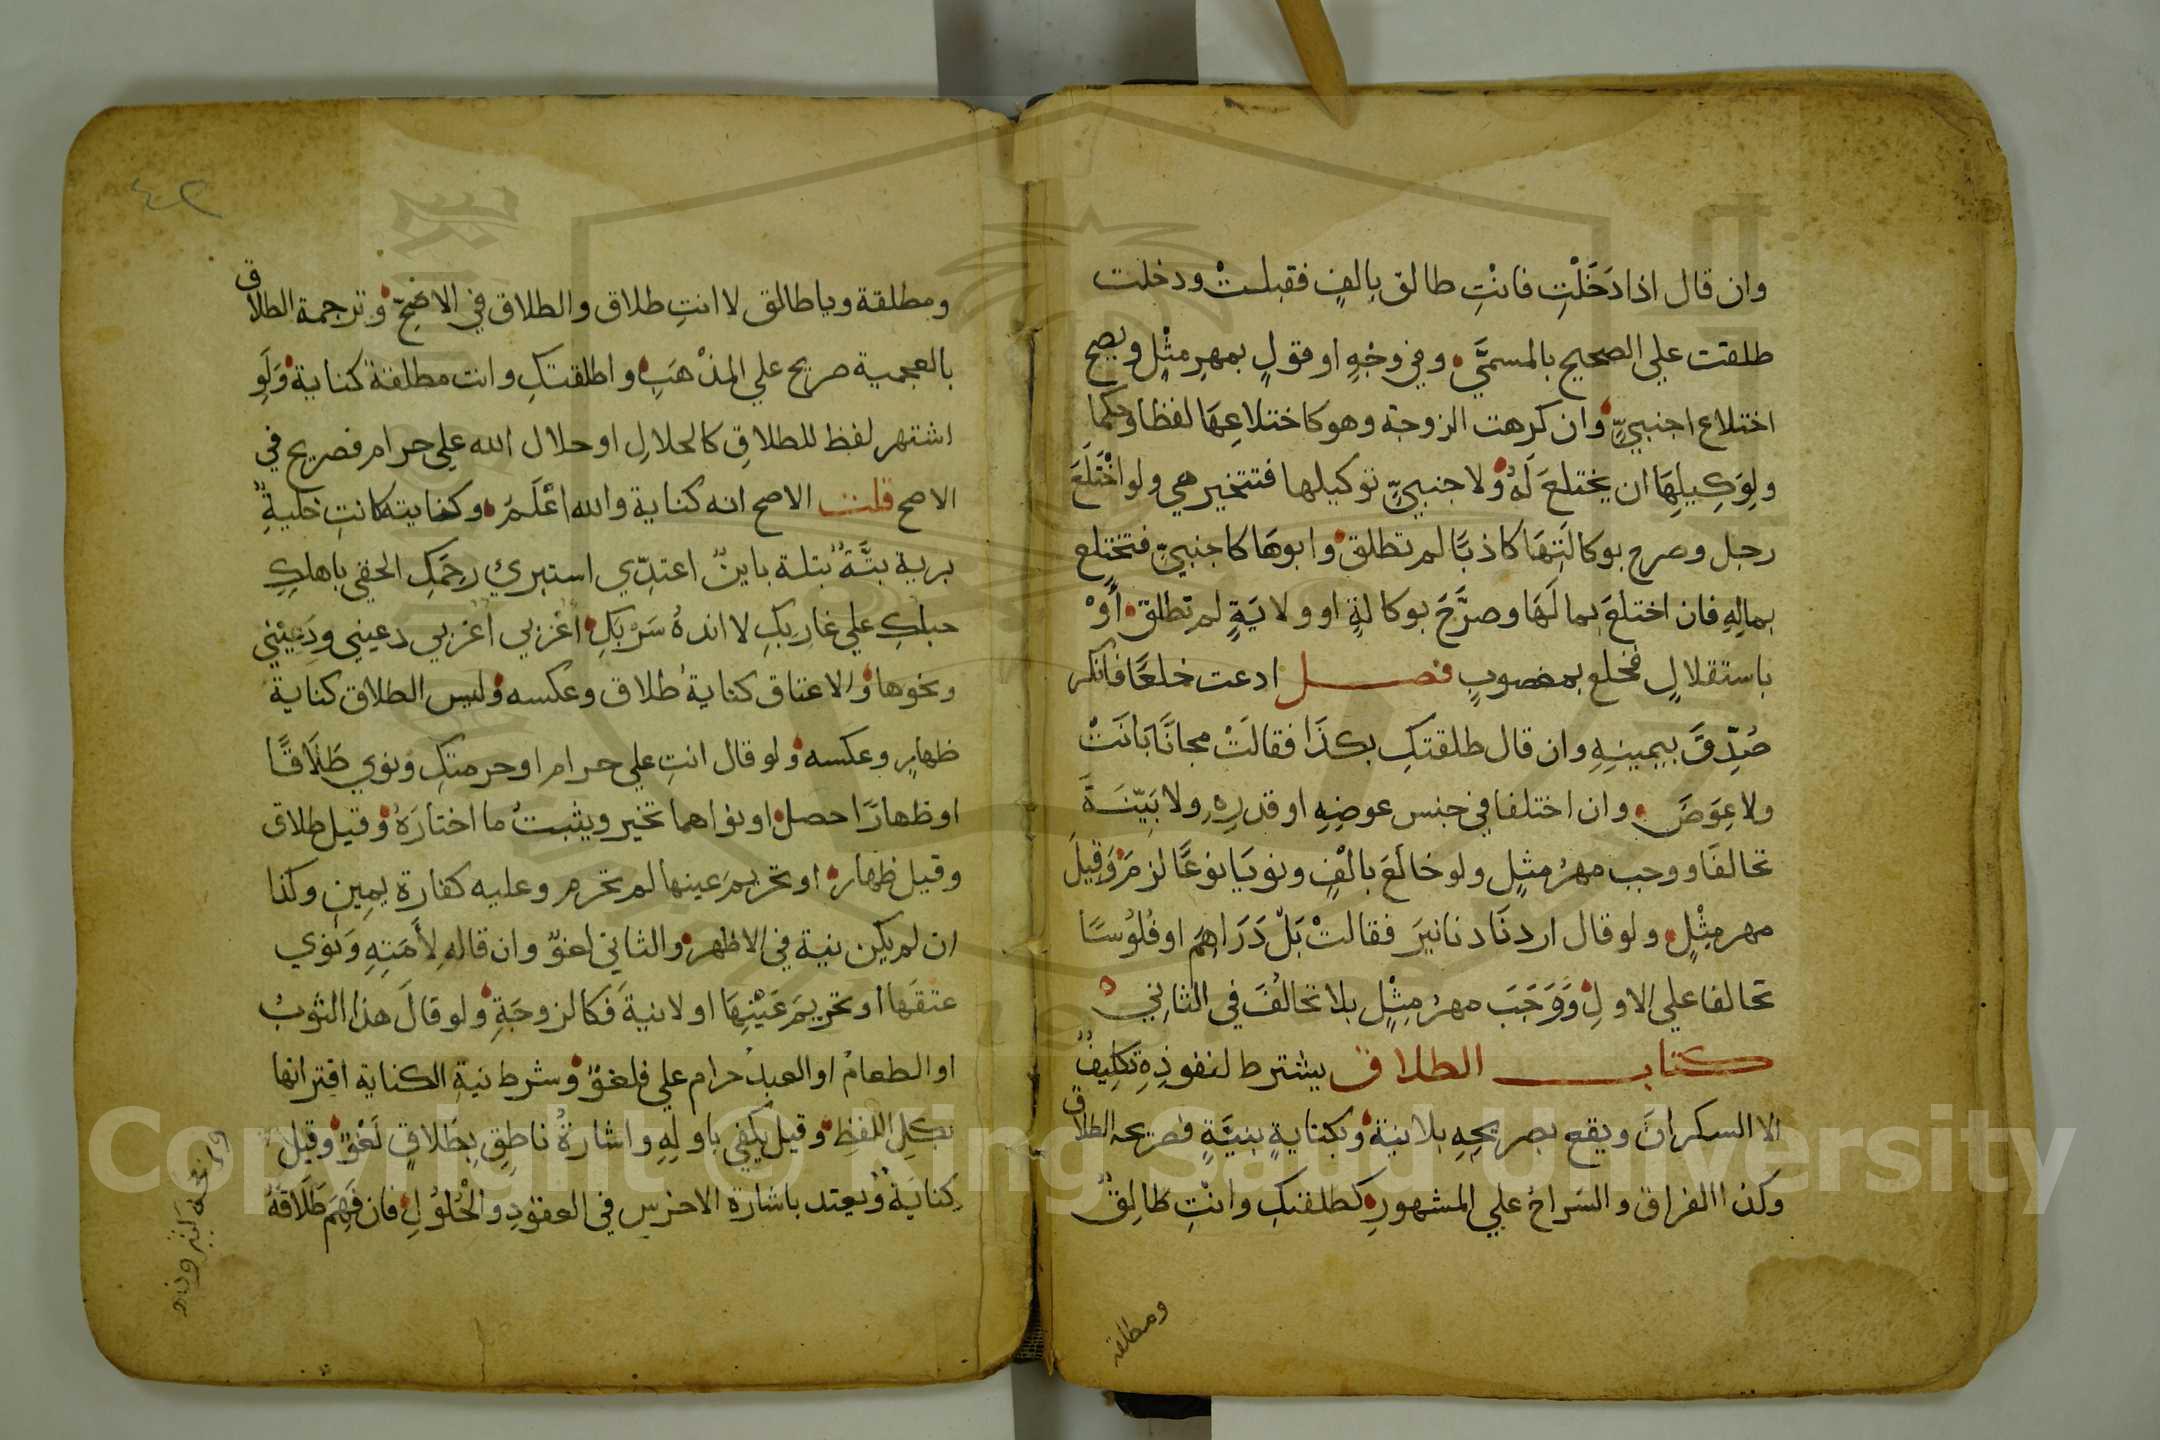 وان قال اذا دَخَلْتِ فانْتِ طالق بِالفٍ فقبلتْ ودخلت
طلقت علي الصحيح بالمسمَّي وفي وَجْهٍ او قولٍ بمهرِ مثْلٍ ويصح
اختلاع اجنبيٍّ وان كرهت الزوجة وهو كاختلاعِهَا لفظا وحكما
ولِوَكِيلِهَا ان يختلعَ لَهُ ولاجنبيٍّ توكيلها فتتخير هي ولو اخْتَلَعَ
رجل وصرح بوكالَتِهَا كاذبًا لم تطلق وابوهَا كاجنبيٍّ فتختلع
بمالِهِ فان اختلعَ بمالَهَا وصرَّحَ بوكالةٍ او ولايَةٍ لم تطلق أوْ
باستقلالٍ فخلع بمغصوبٍ فصل ادعت خلعًا فانكر
صُدِّقَ بيمينِهِ وان قال طلقتكِ بكذَا فقالَتْ مجانًا بَانَتْ
ولا عِوَضَ وان اختلفا في جنس عوضِهِ او قدرِهِ ولا بَيِّنَةَ
تحالفَا ووجب مهرُ مثلٍ ولو خالَعَ بالْفٍ ونويَا نوعًا لزمَ وَقِيلَ
مهر مِثْلٍ ولو قال اردنَا دنانيرَ فقالتْ بَلْ دَرَاهِمَ او فُلُوسًا
تحالفا علي الاولِ وَوَجَبَ مهرُ مِثْلٍ بلا تخالُفَ في الثانِي
كتاب الطلاق يشترط لنفوذِهِ تكلِيفٌ
الا السكرانَ ويقع بصريحِهِ بلا نية وبكنايةٍ بنيَّةٍ فصريحه الطلاق
وكذا الفراق والسَراحُ علي المشهورِ كطلقتكِ وانْتِ طالِقٌ
ومطلقة
٤٢
ومطلقة ويا طالق لا انتِ طلاق والطلاق في الاصَحّ وترجمة الطلاق
بالعجمية صريح علي المذْهَبِ واطلقتكِ وانت مطلقة كناية وَلَوِ
اشتهر لفظ للطلاقِ كالحلالِ او حلال الله علي حرام فصريح في
الاصح قلت الاصح انه كناية والله اعْلَمَ وكنايته كانتِ خليةٌ
برية بتَّةٌ بتلة باينٌ اعتدّي استبرئ رحمَكِ الحقي باهلِكِ
حبلكِ علي غارِبكِ لا اندهُ سَرْبَكِ اعْزبي اغْربي دعيني ودَعِيْني
ونحوها والاعتاق كنايةُ طلاق وعكسه وليس الطلاق كناية
ظهارٍ وعكسه ولو قال انتِ علي حرام او حرمتكِ ونوي طَلَاقًا
او ظهارًا حصل او نواهما تخير ويثبتُ ما اختارَهُ وقيل طلاق
وقيل ظهار او تحريمَ عينها لم تحرم وعليه كفارة يمِينٍ وكذا
ان لم يكن نية في الاظهر والثاني لغوٌ وان قاله لأَمَتِهِ وَنوي
عتقَها او تحريمَ عَيْنِهَا او لا نيةَ فكالزوجَةِ ولو قالَ هذا الثوبُ
او الطعامُ او العبدُ حرام علي فلغوٌ وشرط نيةِ الكناية اقترانها
بكلِ اللفظِ وقيل يكفي باولِهِ واشارةُ ناطِقٍ بِطَلاقٍ لَغْوٌ وقيل
كِنايَةٌ ويعتد باشارة الاخرس في العقودِ والْحُلولِ فان فَهِمَ طَلَاقَهُ